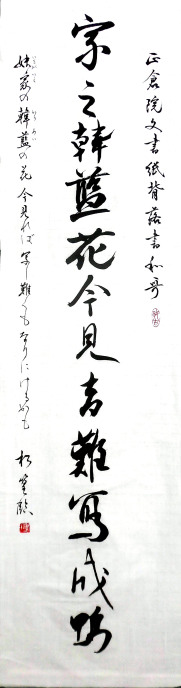 正倉院文書紙背落書和哥
家之韓藍花今見者難写成鴨
妹家の韓藍の花今見れば写し難くもなりにけるかも